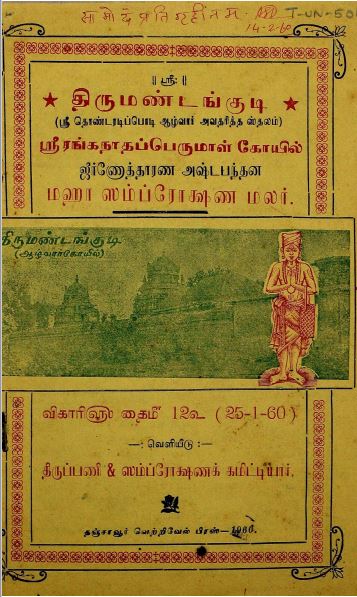 सामोदं प्रतिगृहीतम्. T-UN-50
14-2-60
॥ ஸ்ரீ: ॥
திருமண்டங்குடி
(ஸ்ரீ தொண்டரடிப்பொடி ஆழ்வார் அவதரித்த ஸ்தலம்)
ஸ்ரீரங்கநாதப்பெருமாள் கோயில்
ஜீர்ணோத்தாரண அஷ்டபந்தன
மஹா ஸம்ப்ரோக்ஷண மலர்.
திருமண்டங்குடி
(ஆழ்வார்கோயில்)
விகாரிளு தைமீ 12உ (25-1-60)
—: வெளியீடு :—
திருப்பணி & ஸம்ப்ரோக்ஷணக் கமிட்டியார்.
தஞ்சாவூர் வெற்றிவேல் பிரஸ்—1960.